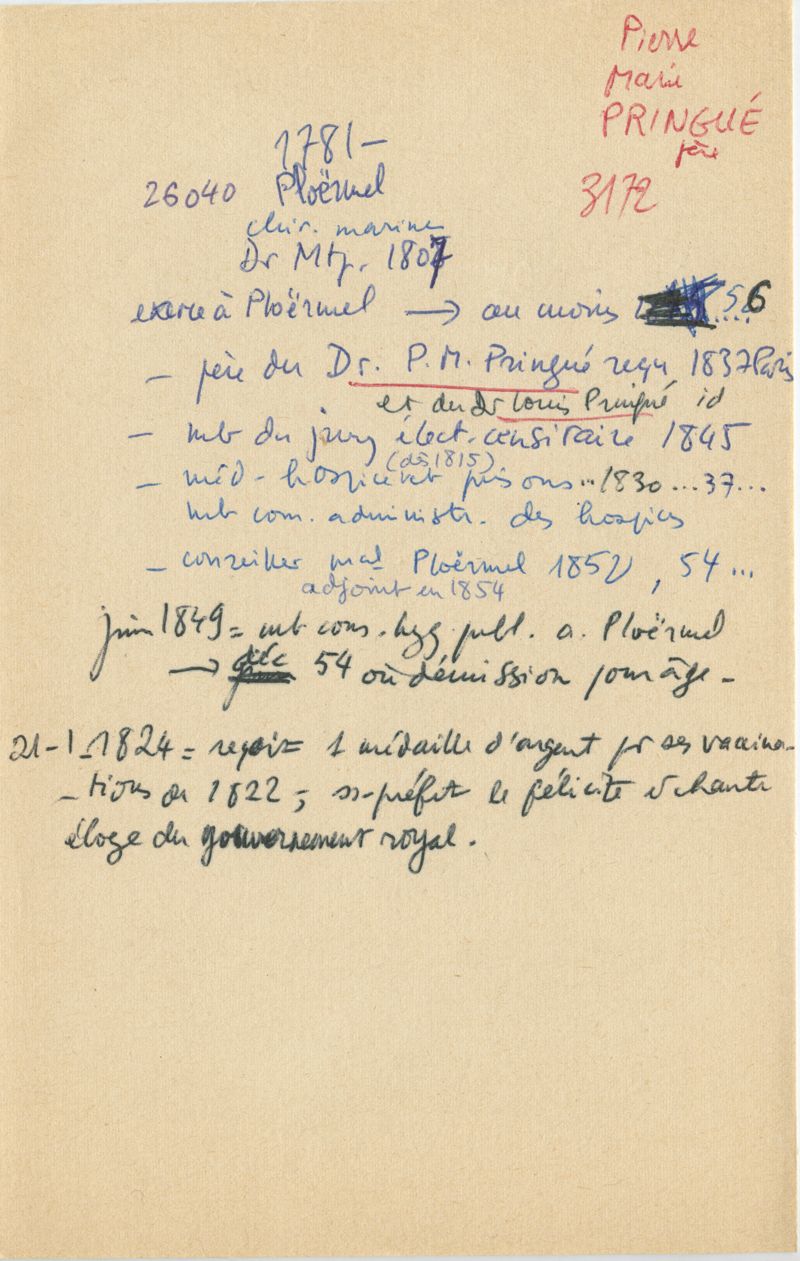 Pierre
Marie
PRINGUÉ
père
3172
1781-
26040 Ploërmel
chir. marine
Dr Mtp. 1807
exerce à Ploërmel → au moins 56
- père du Dr. P. M. Pringué reçu 1837 Paris
et du Dr Louis Pringué id
- mb du jury élect. censitaire 1845
(dès 1815)
- méd. hospice et prisons ... 1830 ... 37 ...
mb com. administr. des hospices
- conseiller mal Ploërmel 1852, 54 ...
adjoint en 1854
juin 1849 = mb cons. hyg. publ. a. Ploërmel
→ déc 54 où démission pour âge -
21-1-1824 = reçoit 1 médaille d'argent pr ses vaccina-
- tions de 1822 ; ss-préfet le félicite & chante
éloge du gouvernement royal.